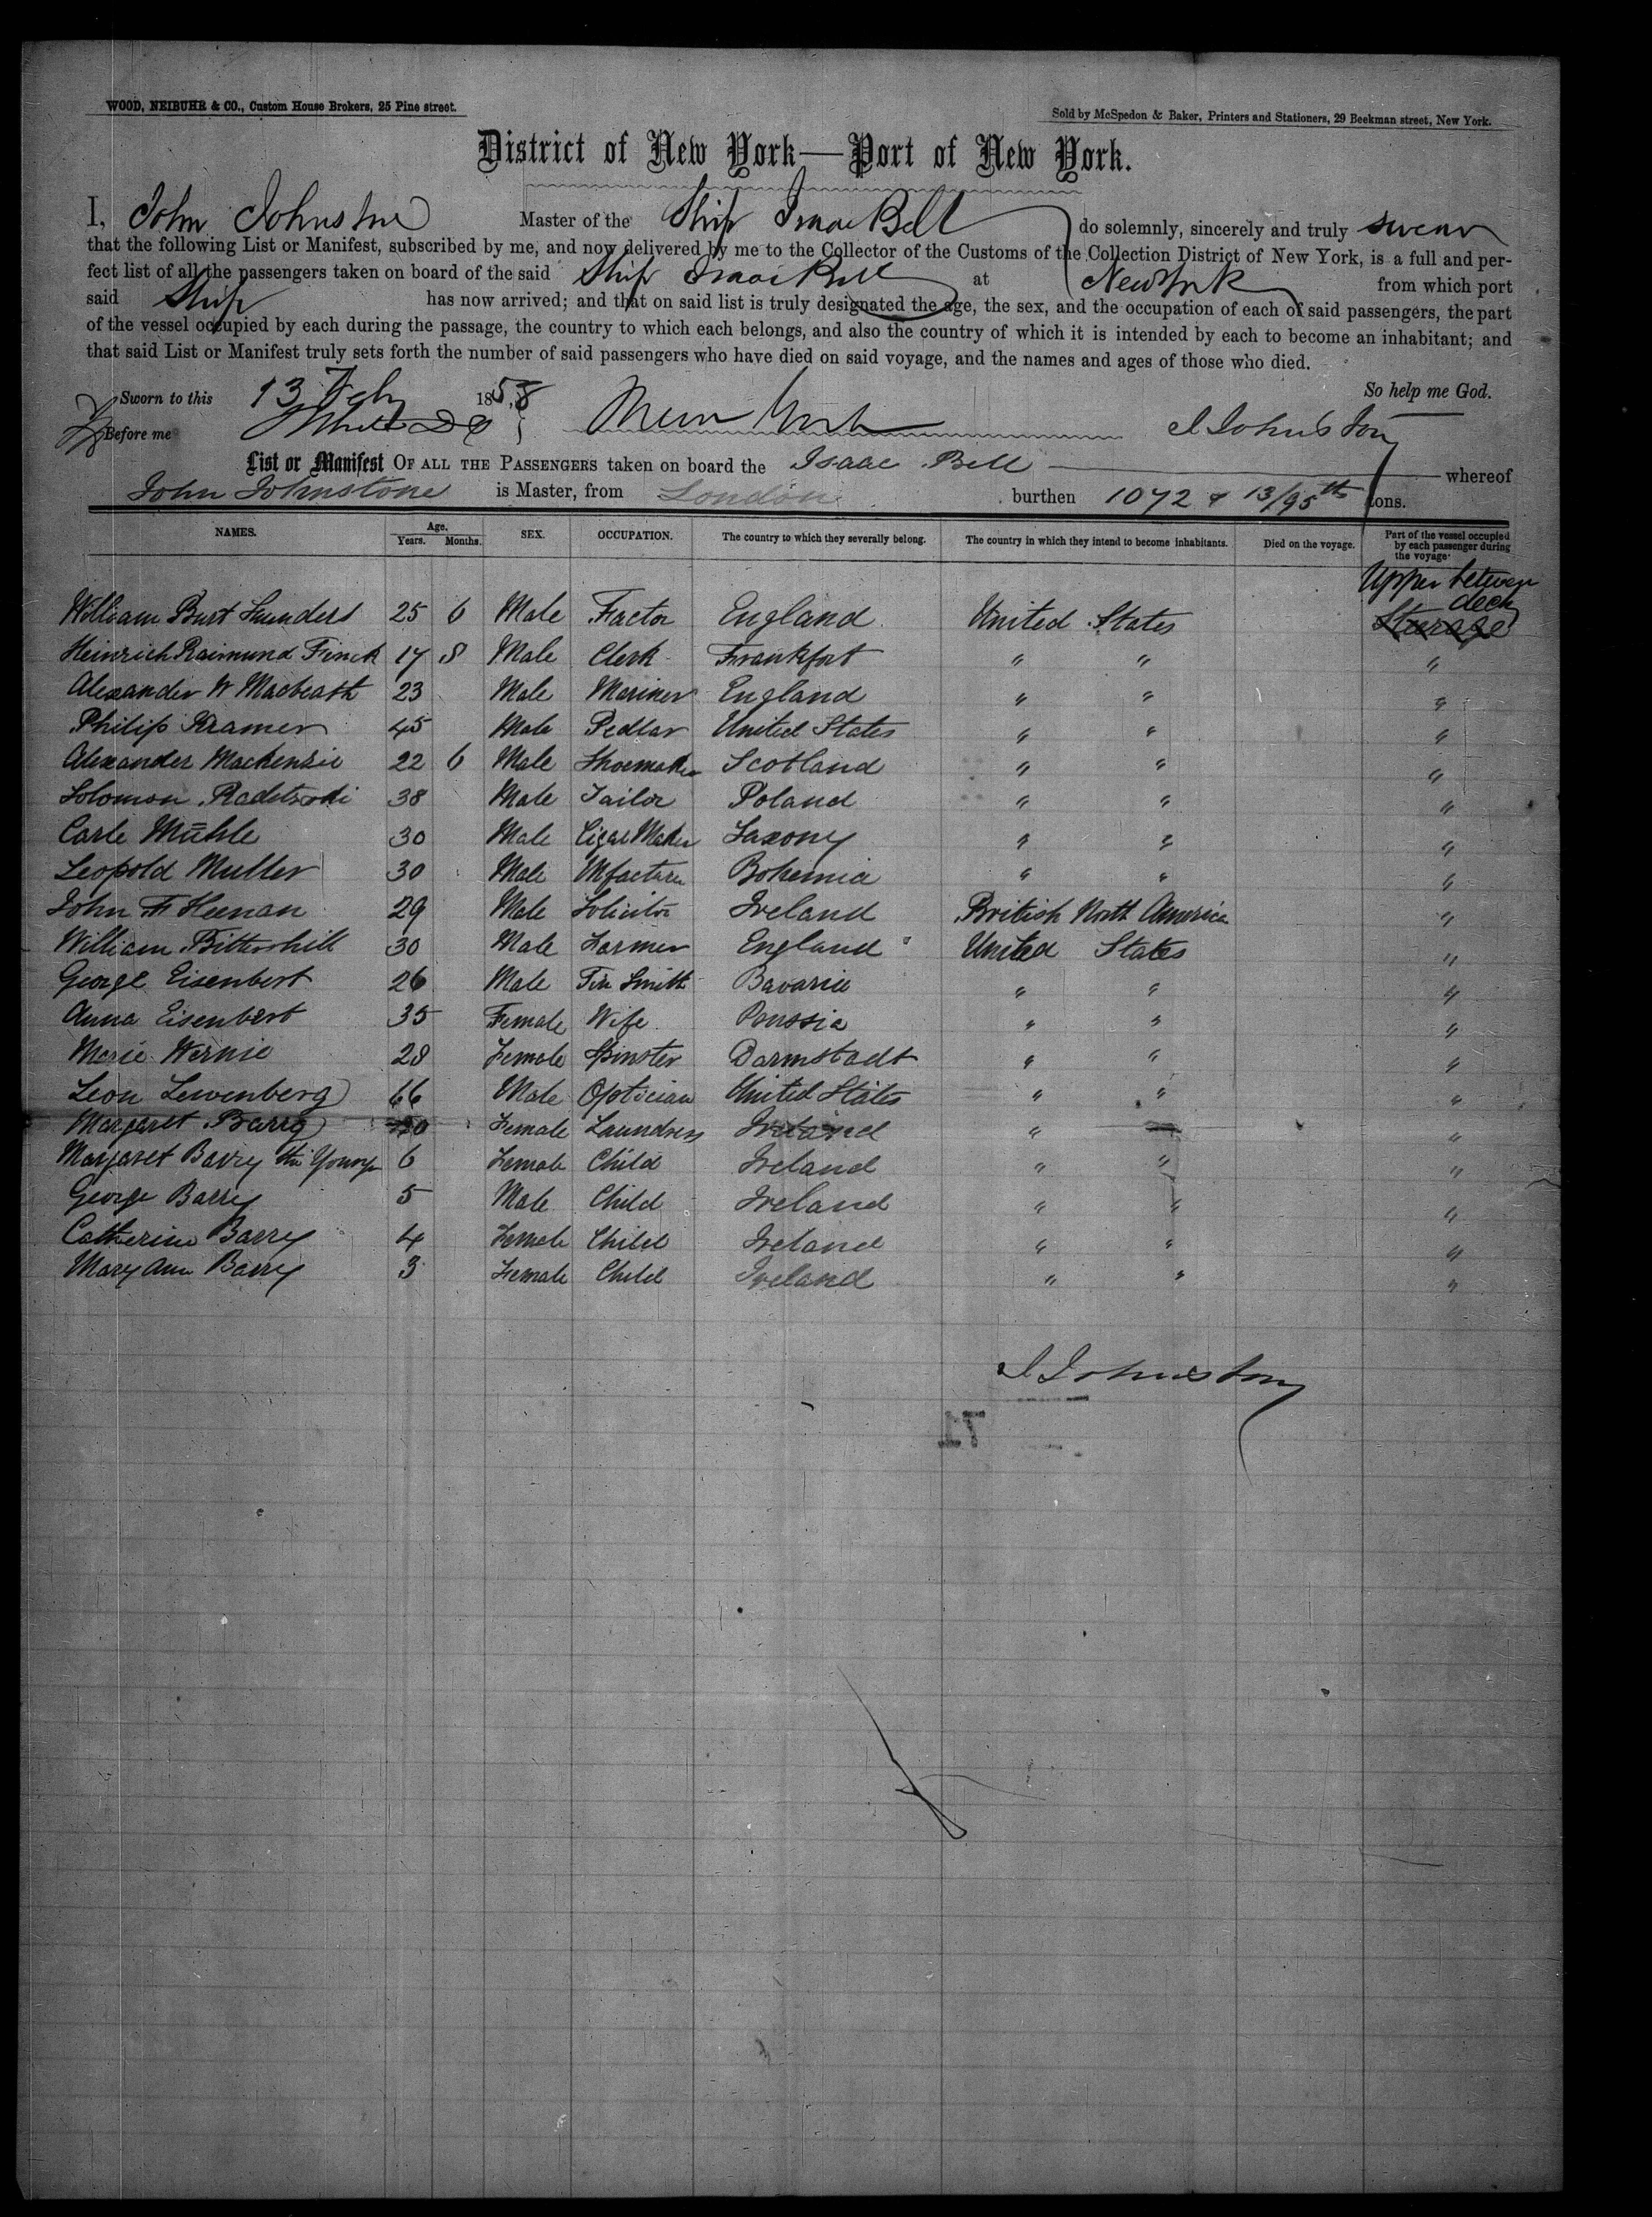 WOOD, NEIBUHR & CO., Custom House Brokers, 25 Pine street.
Sold by McSpedon & Baker, Printers and Stationers, 29 Beekman street, New York.
District of New York—Port of New York.
I, John Johnstone Master of the Ship Isaac Bell do solemnly, sincerely and truly swear
that the following List or Manifest, subscribed by me, and now delivered by me to the Collector of the Customs of the Collection District of New York, is a full and per-
fect list of all the passengers taken on board of the said Ship Isaac Bell at New York from which port
said Ship has now arrived; and that on said list is truly designated the age, the sex, and the occupation of each of said passengers, the part
of the vessel occupied by each during the passage, the country to which each belongs, and also the country of which it is intended by each to become an inhabitant; and
that said List or Manifest truly sets forth the number of said passengers who have died on said voyage, and the names and ages of those who died.
Sworn to this 13 Feby 1858 So help me God.
Before me New York J Johnston
List or Manifest OF ALL THE PASSENGERS taken on board the Isaac Bell whereof
John Johnstone is Master, from London burthen 1072 & 13/95th tons.
NAMES. Age. Years. Months. SEX. OCCUPATION. The country to which they severally belong. The country in which they intend to become inhabitants. Died on the voyage. Part of the vessel occupied by each passenger during the voyage.
Upper between deck
William Burt Saunders 25 6 Male Factor England United States Steerage
Heinrich Raimund Finck 17 8 Male Clerk Frankfort " " "
Alexander W Macbeath 23 Male Mariner England " " "
Philip Kramer 45 Male Pedlar United States " " "
Alexander Mackenzie 22 6 Male Shoemaker Scotland " " "
Solomon Radetzski 38 Male Tailor Poland " " "
Carle Mühle 30 Male Cigar Maker Saxony " " "
Leopold Muller 30 Male Mfacturer Bohemia " " "
John F Heenan 29 Male Solicitor Ireland British North America "
William Bittershill 30 Male Farmer England United States "
George Eisenbert 26 Male Tin Smith Bavaria " " "
Anna Eisenbert 35 Female Wife Prussia " " "
Marie Wernie 28 Female Spinster Darmstadt " " "
Leon Lewenberg 66 Male Optician United States " " "
Margaret Barry Female Laundress Ireland " " "
Margaret Barry the Younger 6 Female Child Ireland " " "
George Barry 5 Male Child Ireland " " "
Catherine Barry 4 Female Child Ireland " " "
Mary Ann Barry 3 Female Child Ireland " " "
J Johnston
71